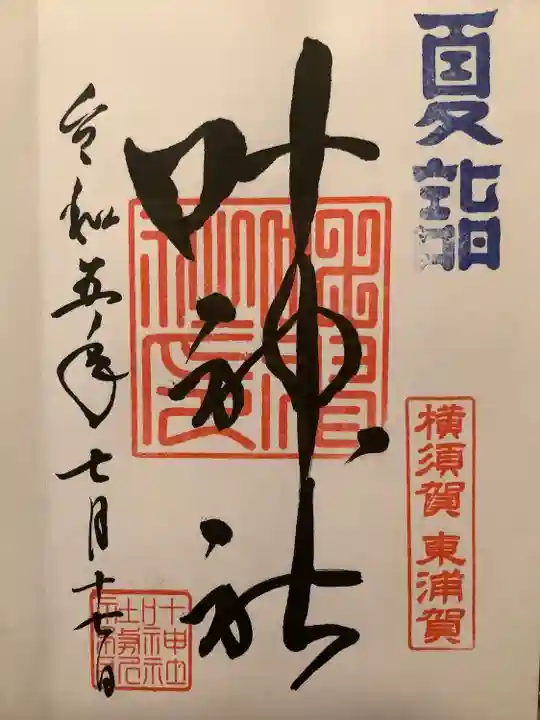 夏詣
横須賀 東浦賀
叶神社
令和五年七月十七日